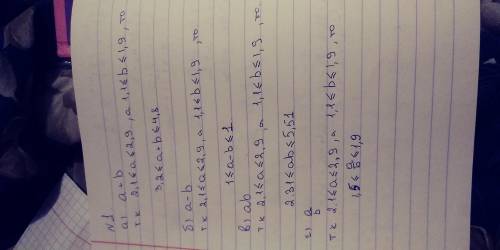 N1
а) a+b
т.к 2,1≤a≤2,9, а 1,1≤b≤1,9, то
3,2≤a+b≤4,8
б) a-b
т.к 2,1≤a≤2,9, а 1,1≤b≤1,9, то
1≤a-b≤1
в) ab
т.к 2,1≤a≤2,9, а 1,1≤b≤1,9, то
2.31≤ab≤5,51
г) a/b
т.к 2,1≤a≤2,9, а 1,1≤b≤1,9, то
1,5≤a/b≤1,9